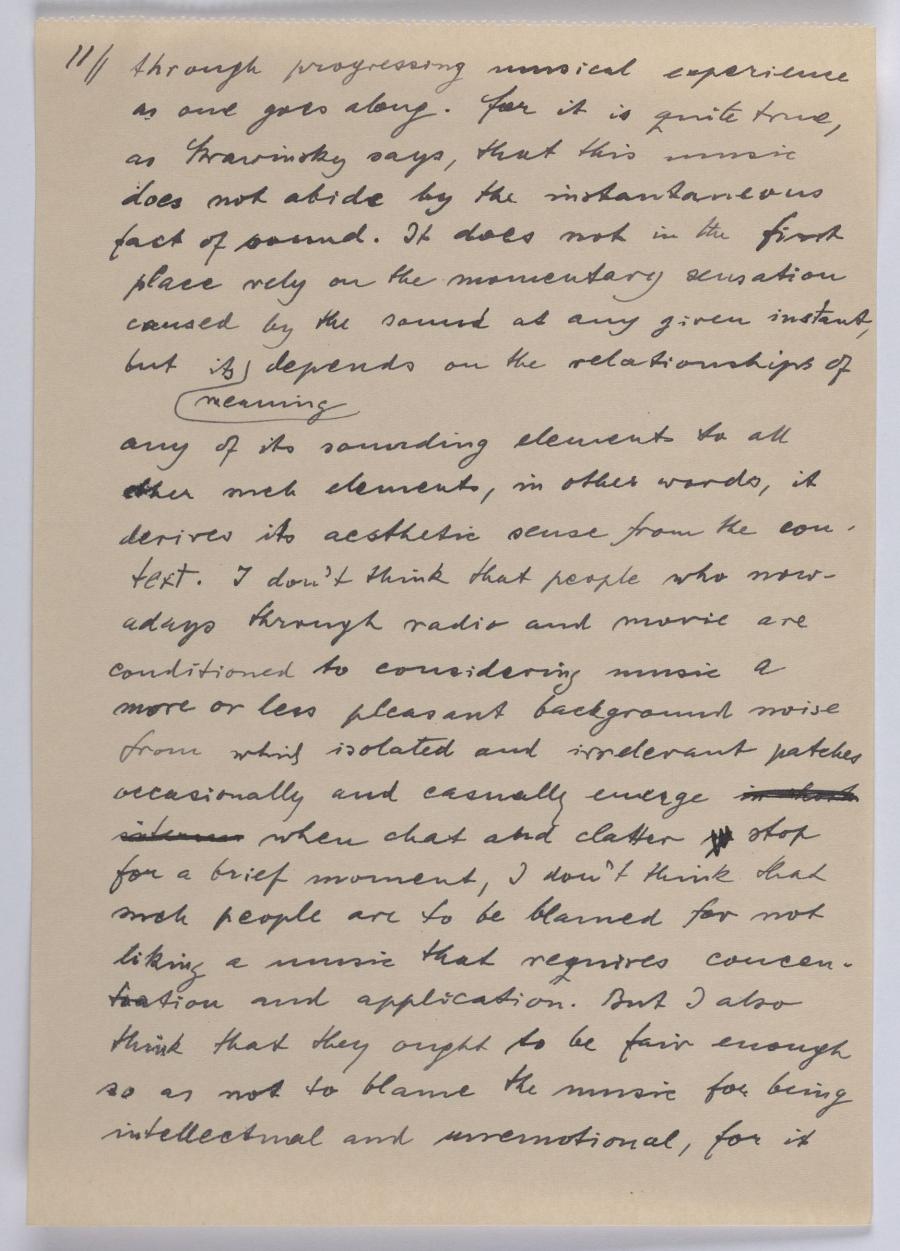 11// through progressing musical experience
as one goes along. For it is quite true,
as Strawinsky says, that this music
does not abide by the instantaneous
fact of sound. It does not in the first
place rely on the momentary sensation
caused by the sound at any given instant,
but its depends on the relationships of
meaning
any of its sounding elements to all
other such elements, in other words, it
derives its aesthetic sense from the con-
text. I don't think that people who now-
adays through radio and movie are
conditioned to considering music a
more or less pleasant background noise
from which isolated and irrelevant patches
occasionally and casually emerge in short
when chat and clatter stop
for a brief moment, I don't think that
such people are to be blamed for not
liking a music that requires concen-
tration and application. But I also
think that they ought to be fair enough
so as not to blame the music for being
intellectual and unemotional, for it